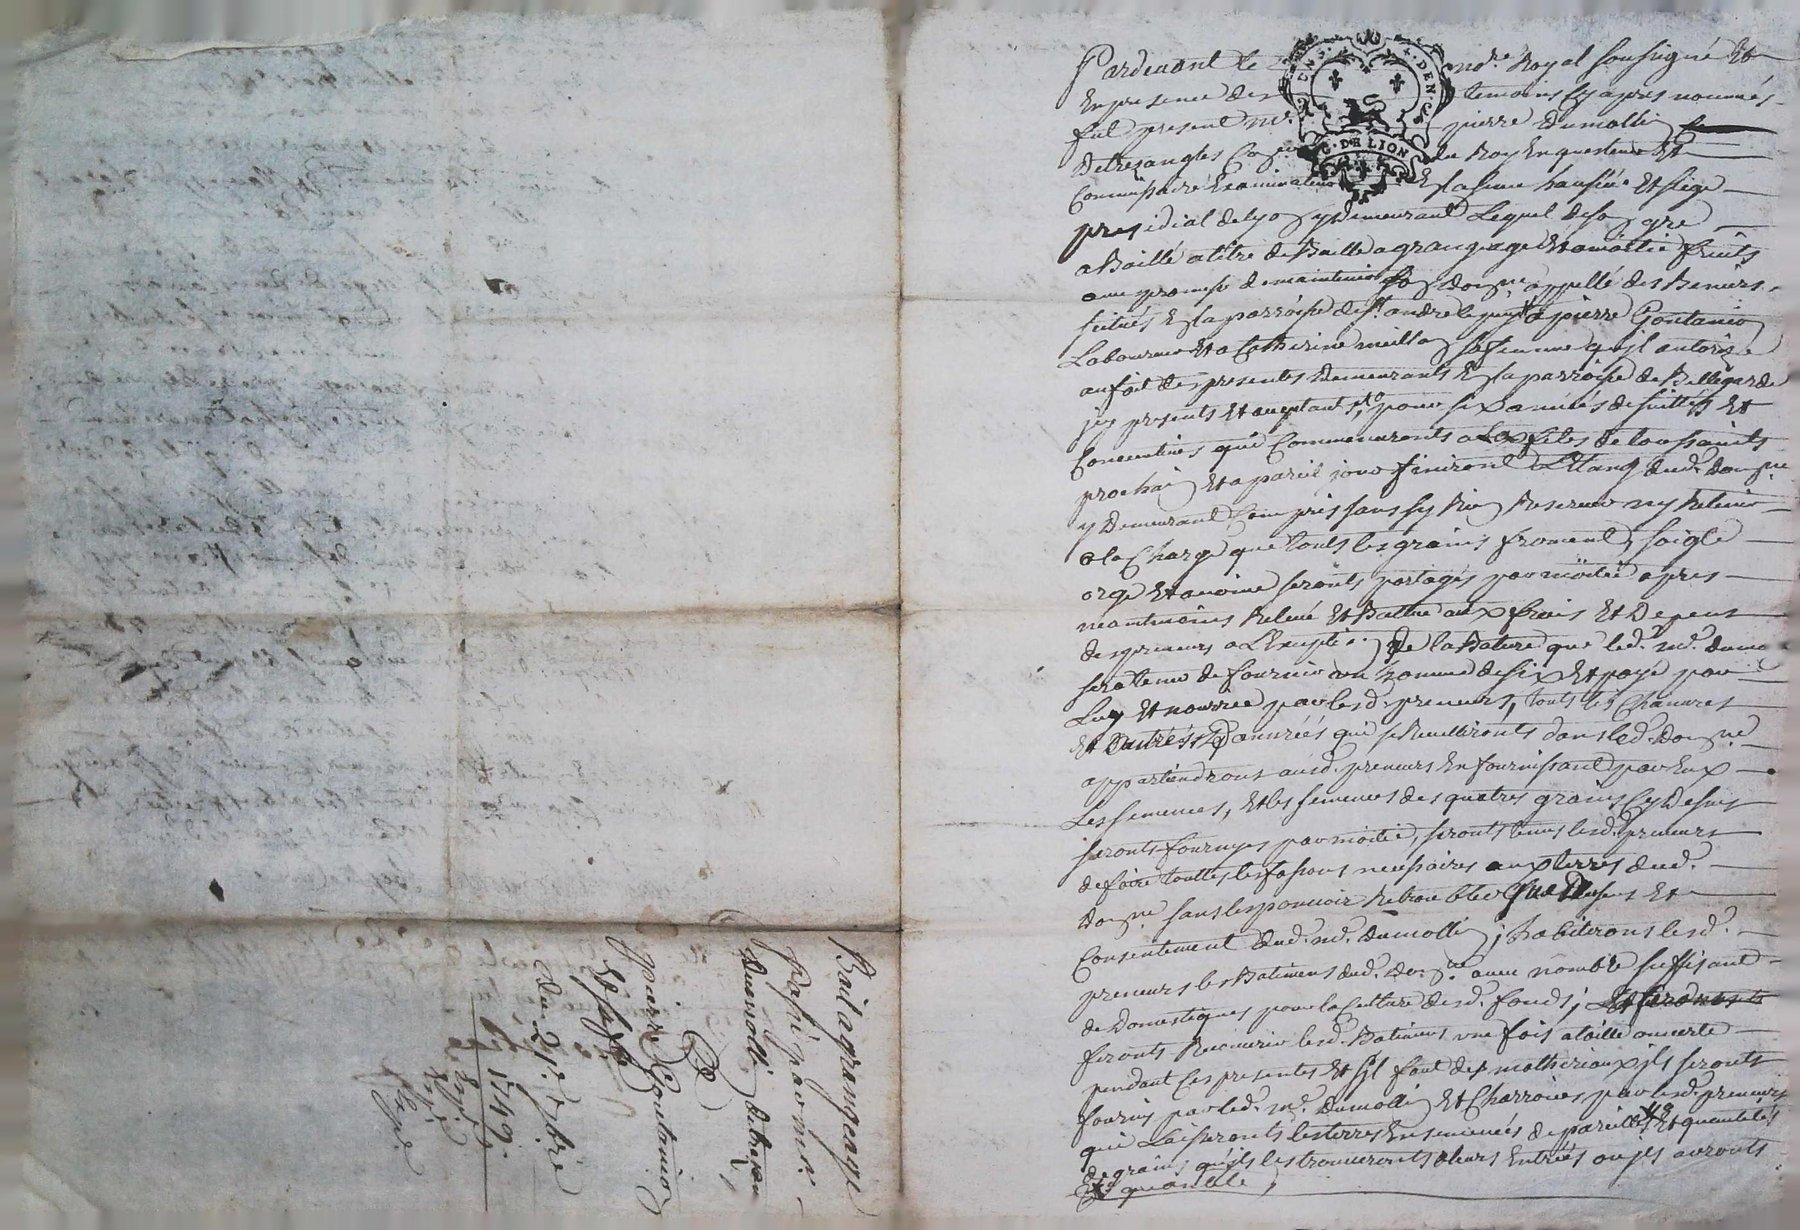 Bail a grangeage
passé par mr.
Dumolli de
a
pierre Goutanier
et sa fe
du 21e 7bre
1749.
G. DE LION
Pardevant le no.re Royal soussigné Et
En presence des temoins cy apres nommés
fut present mr. pierre Dumolli
Detresangles Con.er du Roy Enquesteur Et
Commissaire Examinateur En la senechaussée Et siege
presidial de lyon y demeurant Lequel de son gré
a Baillé a titre de Baille a grangeage Et a moitié fruits
avec promesse de maintenir son Domne. appellé des
scitués En la parroisse de st. andre le puy a pierre Goutanier
Laboureur Et a Catherine meilla sa femme qu'jl autorize
au fait des presentes Demeurants En la parroisse de Bellegarde
jcy presents Et acceptant pour six années desuittes Et
Consecutives qui Commenceronts a La feste de toussaints
prochain Et a pareil jour finiront L'Etang dud. Domne.
y Demeurant Compris sans sy Rien Reserver ny Retenir
a la Charge que touts les grains froment, soigle
orge Et avoine seronts partagés par moitié apres
neantmoins Relevé Et Battue aux frais Et Depens
des preneurs a L'Exception De la Bature que led. mr. dumo
sera tenu de fournir un homme de six Et payé par
Luy Et nourrie par lesd. preneurs, touts les Chanvres
Et Dautres Danrréés qui se Recuillironts dans led. Domne.
appartiendrons ausd. preneurs En fournissant par Eux
Les semences, Et les semences des quatres grains Cy Desus
seronts fournyes par moitié, seronts tenus lesd. preneurs
de faire touttes les fasons necessaires aux terres dud.
Domne. sans les pouvoir Retroubler sans Et
Consentement dud. mr. Dumolli; habiterons lesd.
preneurs les Batimens dud. Domne. avec nombre suffisant
de Domestiques pour la Culture desd. fonds;
feronts Recouvrir lesd. Batimens une fois a taille ouverte
pendant Ces presentes Et s'jl faut des matheriaux jls seronts
fournis par led. mr. Dumolli Et Charroiés par lesd. preneurs
qui Laisseronts les terres Ensemencés de pareille Et quantités
de grains qu'jls les trouveronts a leurs Entréés ou jls auronts
quantité;